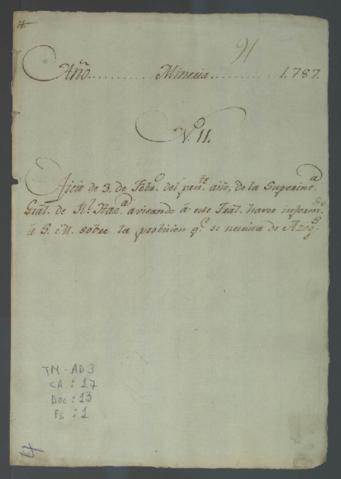 91
Año ......... Mineria ......... 1787.
N.º 11.
Ofício de 3. de Feb.º del pres.te año, de la Superint.a
Gral. de Rl. Hac.a avisando á este Tral. haver inform.do
á S. M. sobre la provicion q.e se necesita de Azog.s
TM-AD3
CA: 17
Doc: 13
Fs: 1